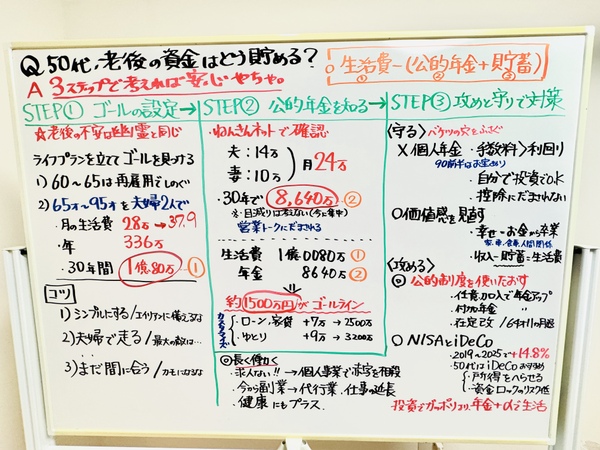 Q 50代、老後の資金はどう貯める？
A 3ステップで考えれば安心やちゃ。
○ 生活費−(公的年金+貯蓄)
① ② ③
STEP① ゴールの設定→
☆老後の不安は幽霊と同じ
ライフプランを立ててゴールを見つける
1) 60〜65は再雇用でしのぐ
2) 65才〜95才を夫婦2人で
・月の生活費 28万→37.9
・年 336万
・30年間 1億80万 ①
コツ
1) シンプルにする/エイリアンに備えるな
2) 夫婦で走る/最大の敵は…
3) まだ間に合う/カモになるな
STEP② 公的年金を知る→
・ねんきんネットで確認
夫：14万
妻：10万
月24万
・30年で 8,640万 ②
※目減りは考えない(今に集中)
営業トークにだまされる
生活費 1億0080万 ①
年金 8640万 ②
⇓
約1500万円がゴールライン
カスタマイズ
・ローン、家賃 +7万→2500万
・ゆとり +9万→3200万
◎長く働く
・求人ない!!→個人事業で赤字を相殺
・今から副業→代行業、仕事の延長
・健康にもプラス
STEP③ 攻めと守りで対策
〈守る〉バケツの穴をふさぐ
X 個人年金・手数料>利回り
90前半はお宝あり
・自分で投資でOK
・控除にだまされない
○価値感を見直す
・幸せ−お金から卒業
家、車、食事、人間関係
・収入−貯蓄=生活費
〈攻める〉
◎ 公的制度を使いたおす
・任意加入で年金アップ
・付加年金
・在定改/64才11の月退
○ NISAとiDeCo
・2019〜2025で+14.8%
・50代はiDeCoおすすめ
・所得をへらせる
・資金ロックのリスク低
投資でガッポリより、年金+αで生活